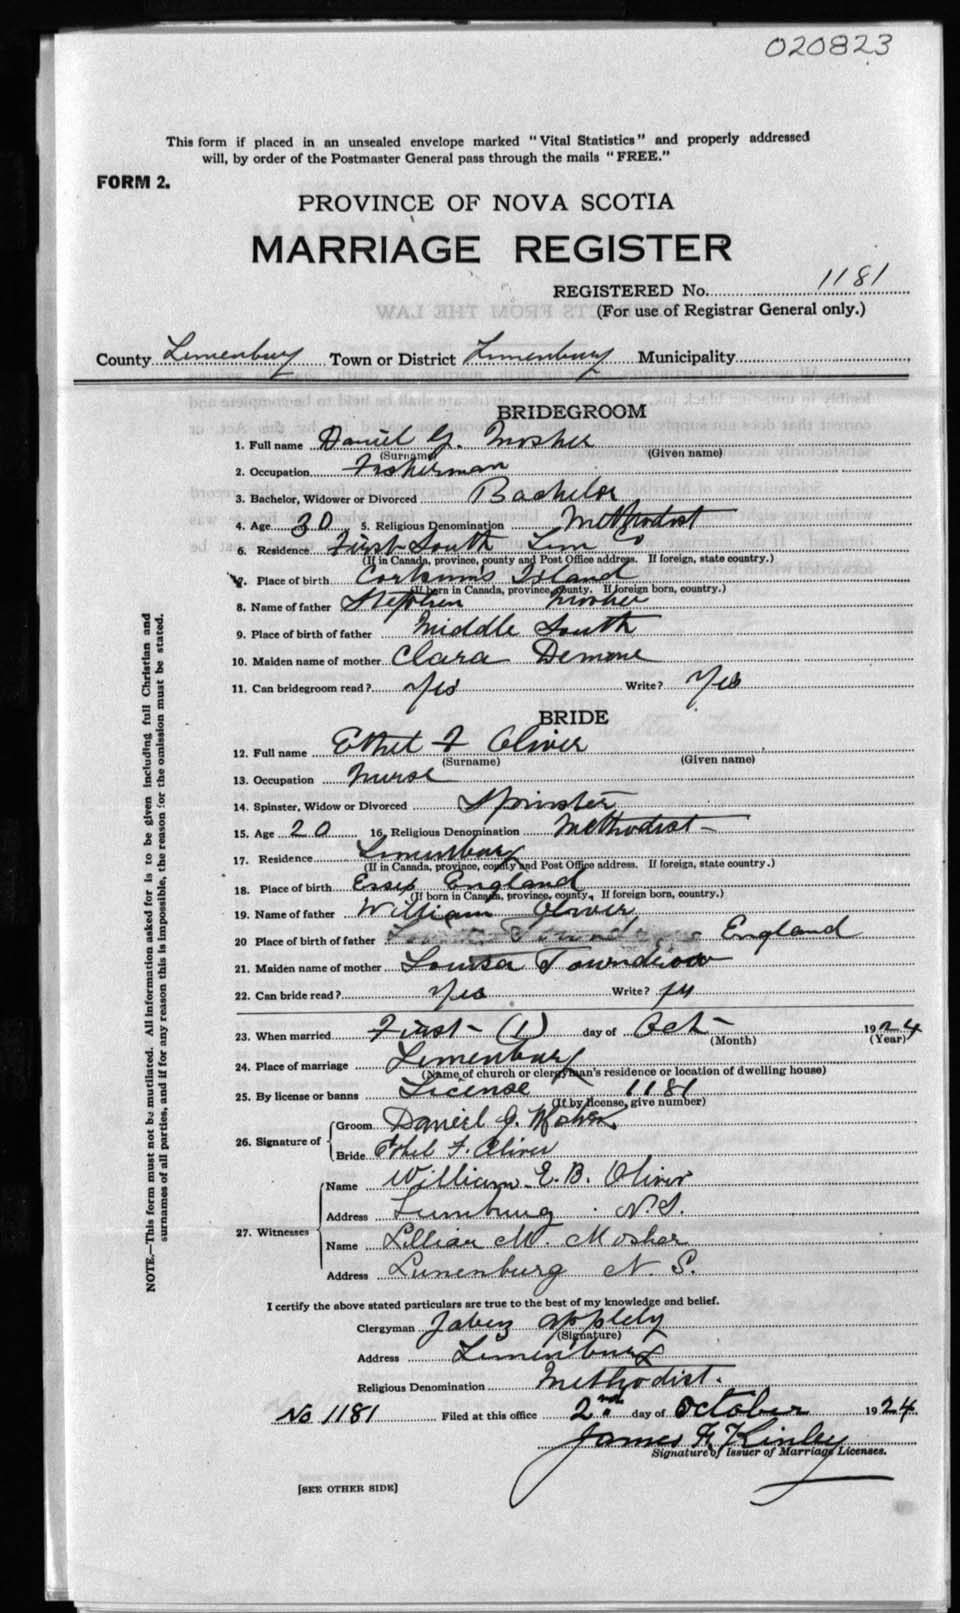 020823
This form if placed in an unsealed envelope marked "Vital Statistics" and properly addressed
will, by order of the Postmaster General pass through the mails "FREE."
FORM 2.
PROVINCE OF NOVA SCOTIA
MARRIAGE REGISTER
REGISTERED No. 1181
(For use of Registrar General only.)
County Lunenburg Town or District Lunenburg Municipality
BRIDEGROOM
1. Full name Daniel G. Mosher
(Surname) (Given name)
2. Occupation Fisherman
3. Bachelor, Widower or Divorced Bachelor
4. Age 30 5. Religious Denomination Methodist
6. Residence First South Lun Co
(If in Canada, province, county and Post Office address. If foreign, state country.)
7. Place of birth Corkum's Island
(If born in Canada, province, county. If foreign born, country.)
8. Name of father Stephen Mosher
9. Place of birth of father Middle South
10. Maiden name of mother Clara Demone
11. Can bridegroom read? Yes Write? Yes
BRIDE
12. Full name Ethel F Oliver
(Surname) (Given name)
13. Occupation Nurse
14. Spinster, Widow or Divorced Spinster
15. Age 20 16. Religious Denomination Methodist
17. Residence Lunenburg
(If in Canada, province, county and Post Office address. If foreign, state country.)
18. Place of birth Essex England
(If born in Canada, province, county. If foreign born, country.)
19. Name of father William Oliver
20 Place of birth of father England
21. Maiden name of mother Louisa Towndrow
22. Can bride read? Yes Write? yes
23. When married First (1) day of Oct 1924
(Month) (Year)
24. Place of marriage Lunenburg
(Name of church or clergyman's residence or location of dwelling house)
25. By license or banns License 1181
(If by license, give number)
26. Signature of
Groom Daniel G. Mosher
Bride Ethel F. Oliver
27. Witnesses
Name William E. B. Oliver
Address Lunenburg N.S.
Name Lillian M. Mosher
Address Lunenburg N. S.
I certify the above stated particulars are true to the best of my knowledge and belief.
Clergyman Jabez Appleby
(Signature)
Address Lunenburg
Religious Denomination Methodist.
No 1181 Filed at this office 2nd day of October 1924
James F. Kinley
Signature of Issuer of Marriage Licenses.
[SEE OTHER SIDE]
NOTE.—This form must not be mutilated. All information asked for is to be given including full Christian and
surnames of all parties, and if for any reason this is impossible, the reason for the omission must be stated.